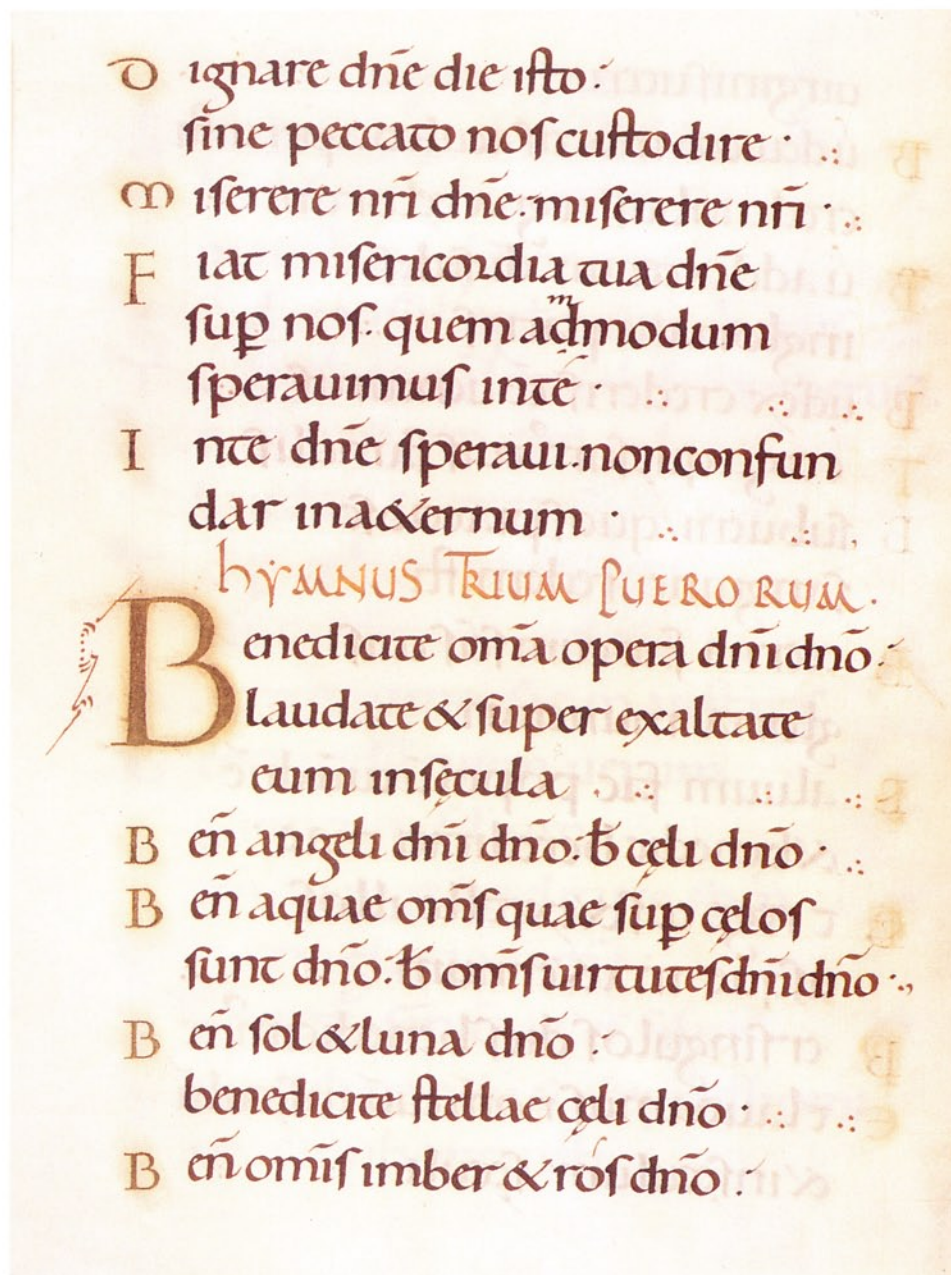 Dignare dn̄e die isto·
sine peccato nos custodire·
Miserere nr̄i dn̄e· miserere nr̄i·
Fiat misericordia tua dn̄e
sup̱ nos· quem admodum
sperauimus inte·
Inte dn̄e speraui·nonconfun
dar ina&ernum·
hYMNUS TRIUM PUERORUM·
Benedicite om̄a opera dn̄i dn̄o·
laudate & super exaltate
eum insęcula
Ben̄ angeli dn̄i dn̄o· b̄ cęli dn̄o·
Ben̄ aquae om̄s quae sup̱ cęlos
sunt dn̄o· b̄ om̄s uirtutes dn̄i dn̄o·
Ben̄ sol & luna dn̄o·
benedicite stellae cęli dn̄o·
Ben̄ omīs imber & ros dn̄o·